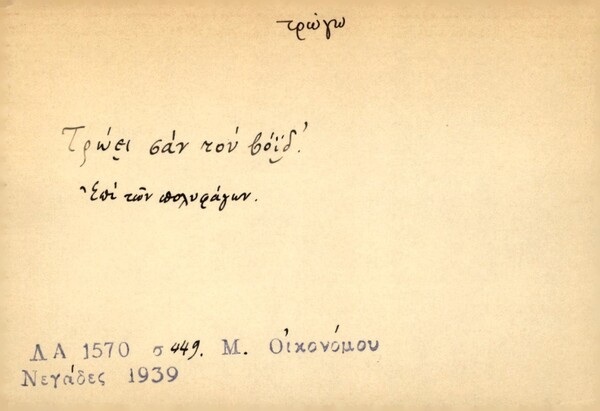 τρώγω
Τρώει σάν τού βόϊδ'.
Ἐπί τῶν πολυφάγων.
ΛΑ 1570 σ 449. Μ. Οἰκονόμου
Νεγάδες 1939